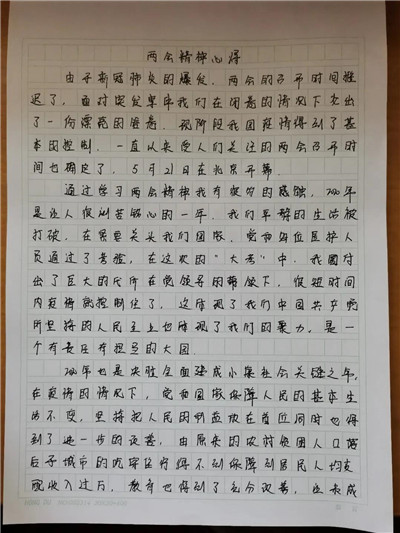 两会精神心得
由于新冠肺炎的爆发，两会的召开时间推
迟了，面对突发事件我们在闭卷的情况下交出
了一份漂亮的答卷，现阶段我国疫情得到了基
本的控制，一直以来受人们关注的两会召开时
间也确定了，5月21日在北京开幕。
通过学习两会精神我有颇多的感触，2020年
是让人很刻苦铭心的一年，我们平静的生活被
打破，在紧要关头我们国家，党和各位医护人
员通过了考验，在这次的"大考"中，我国付
出了巨大的代价在党领导的带领下，很短时间
内疫情就控制住了，这体现了我们中国共产党
所坚持的人民至上也体现了我们的实力，是一
个有责任有担当的大国
2020年也是决胜全面建成小康社会关键之年，
在疫情的情况下，党和国家保障人民的基本生
活不变，坚持把人民的利益放在首位同时也得
到了进一步的改善，由原来的农村贫困人口落
后于城市的优穿住行得不到保障到居民人均支
配收入过万，教育也得到了充分改善，生长成